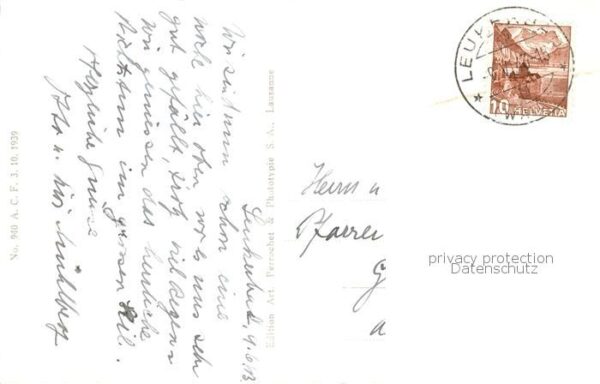 Leukerbad, 9.6.
Wir sind nun schon eine
Woche hier oben wo es uns sehr
gut gefällt, trotz viel Regen
wir geniessen das herrliche
Nichtstun im grossen Stil.
Herzliche Grüsse
No. 940 A. C. F. 3. 10. 1939
Edition Art. Perrochet & Phototypie S. A., Lausanne
Herrn u
Pfarrer
LEUKERBAD
10
HELVETIA
privacy protection
Datenschutz